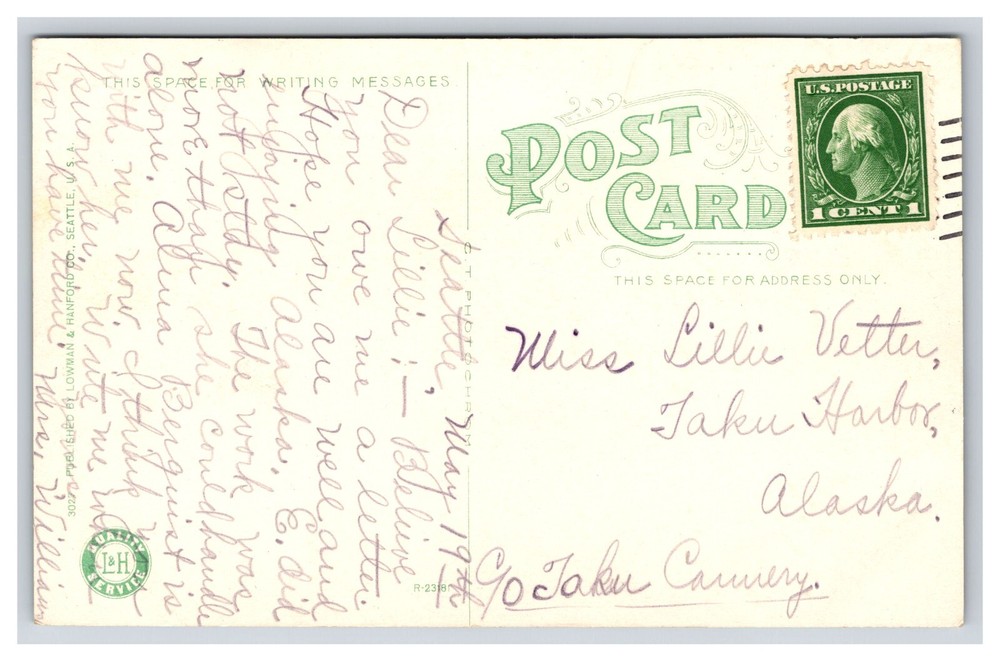 THIS SPACE FOR WRITING MESSAGES
Seattle, May 19th
Dear Lillie:— Believe
you owe me a letter.
Hope you are well and
enjoying Alaska. E. did
not study. The work was
more than she could handle
alone. Alma Berquist is
with me now. I think you
know her. Write me when
you have time. Mrs. William
POST
CARD
U.S. POSTAGE
1 CENT 1
THIS SPACE FOR ADDRESS ONLY.
Miss Lillie Vetter,
Taku Harbor,
Alaska.
c/o Taku Cannery.
PUBLISHED BY LOWMAN & HANFORD CO., SEATTLE, U.S.A.
C T PHOTOCHROM
QUALITY
L&H
SERVICE